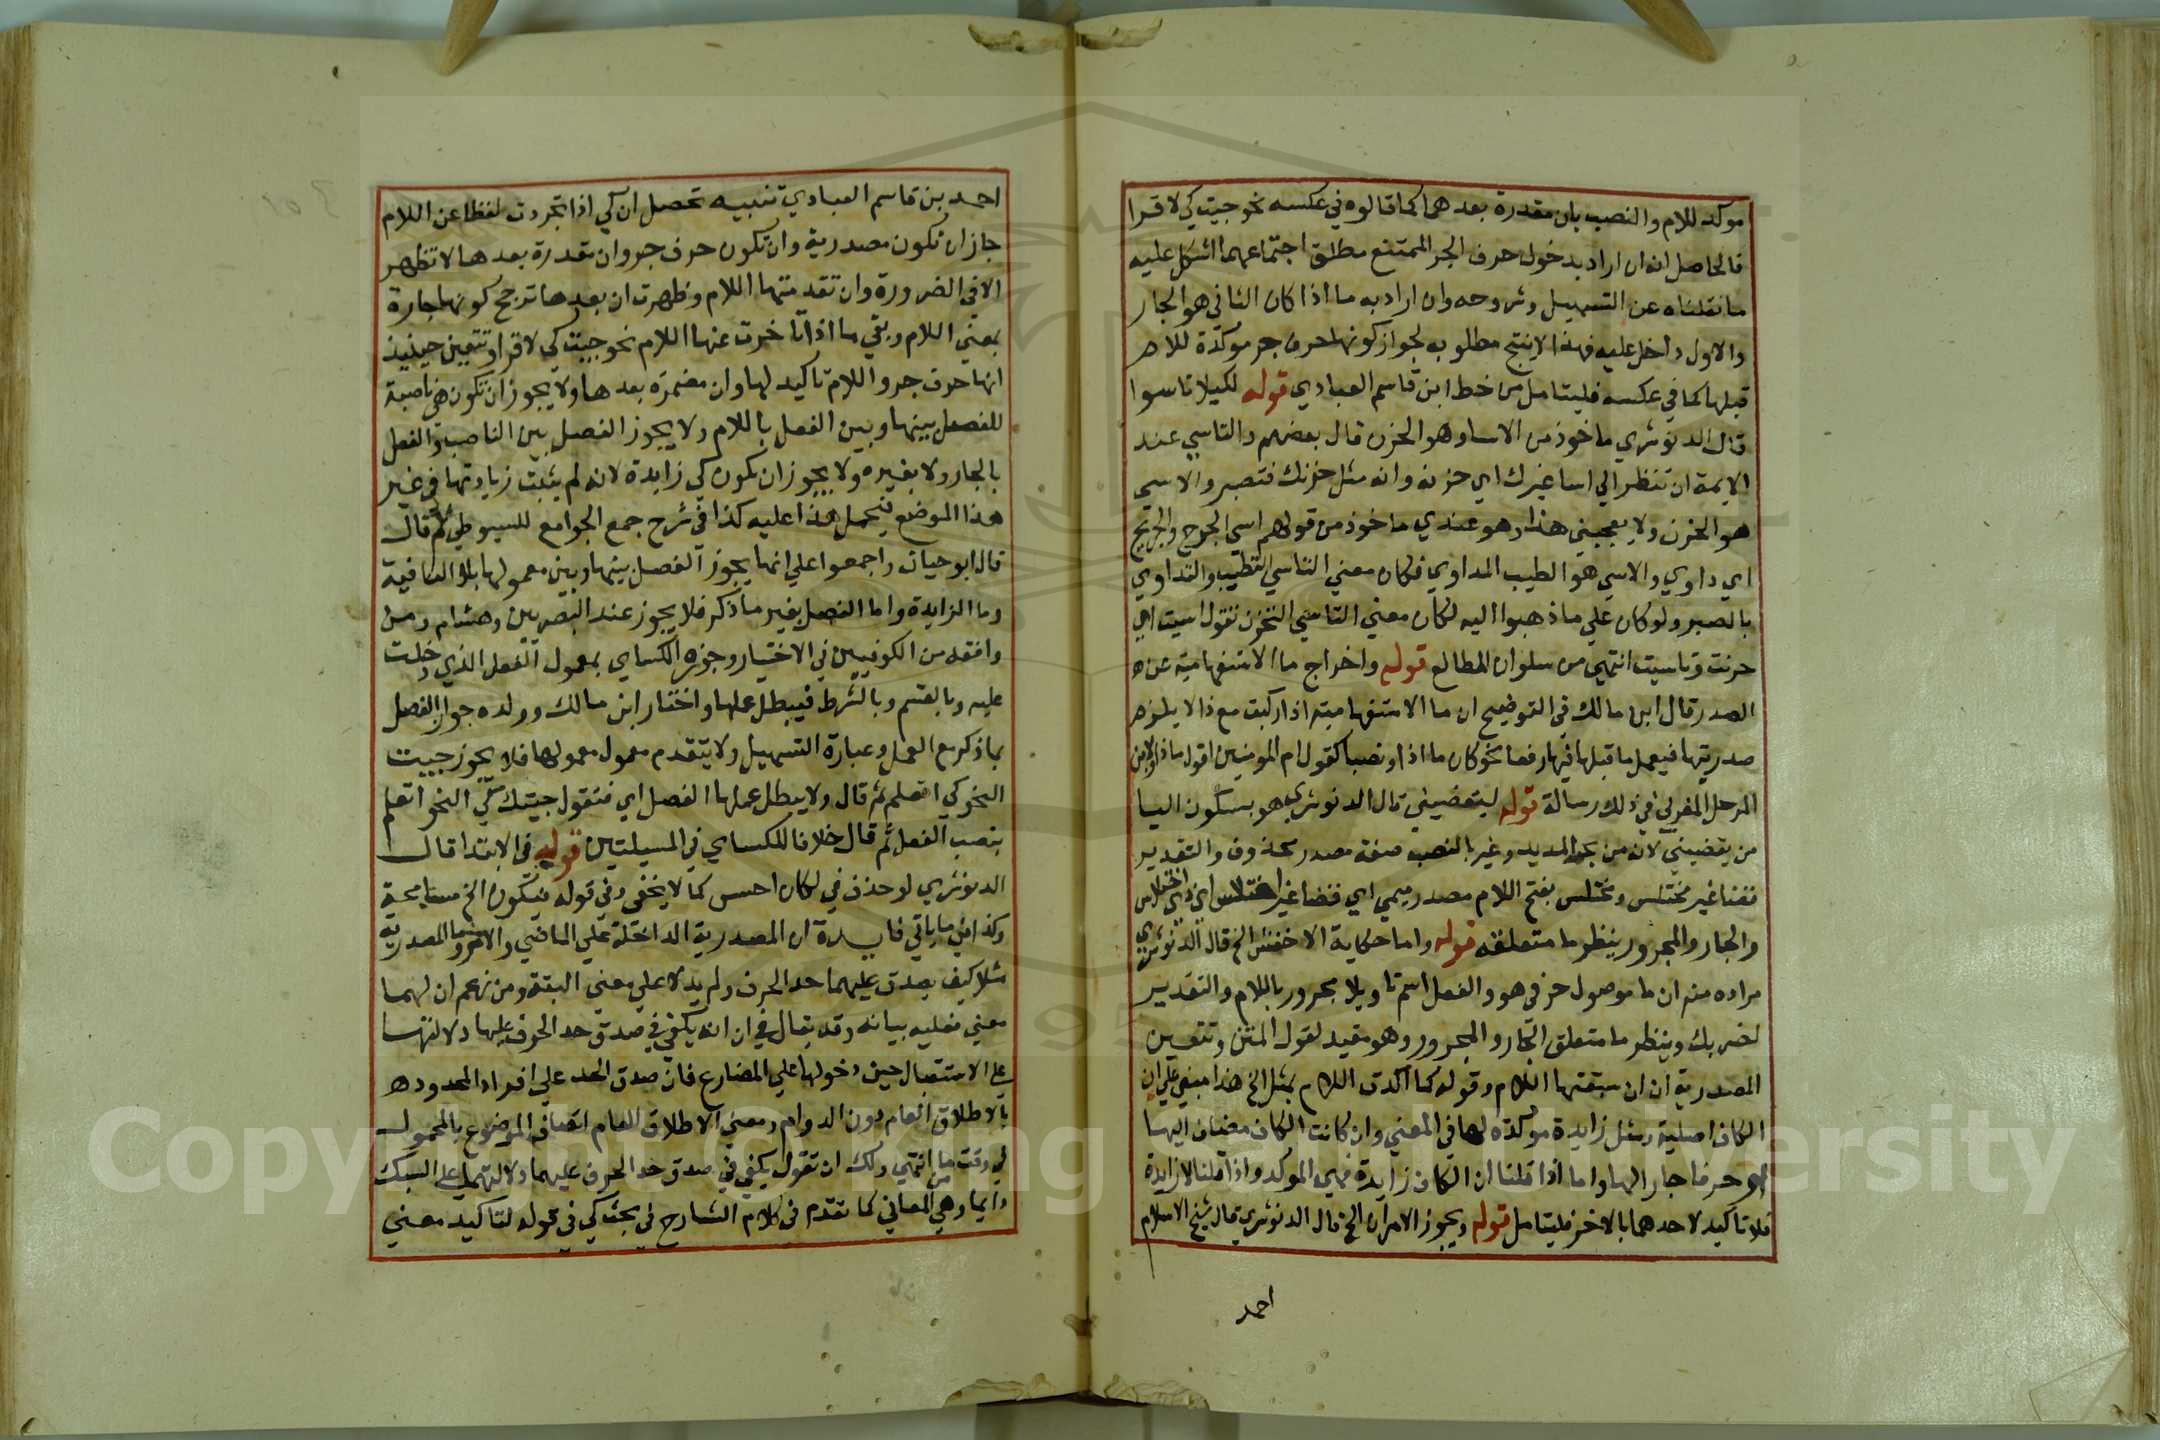 موكد للام والنصب بان مقدرة بعدهما كما قالوه في عكسه نحو جيت كي لاقرا
فالحاصل انه ان اراد بدخول حرف الجر الممتنع مطلق اجتماعهما اشكل عليه
ما نقلناه عن التسهيل وشروحه وان اراد به ما اذا كان الثاني هو الجار
والاول داخل عليه فهذا لا ينتج مطلوبه لجواز كونها حرف جر موكدة للام
قبلها كما في عكسه فليتامل من خط ابن قاسم العبادي قوله لكيلا تاسوا
قال الدنوشري ماخوذ من الاسا وهو الحزن قال بعضهم والتاسي عند
الايمة ان تنظر الي اسا غيرك اي حزنه وانه مثل حزنك فتصبر والاسي
هو الحزن ولا يعجبني هذا وهو عندي ماخوذ من قولهم اسي الجرح والجريح
اي داوي والاسي هو الطبيب المداوي فكان معني التاسي التطبب والتداوي
بالصبر ولو كان علي ما ذهبوا اليه لكان معني التاسي التحزن تقول اسيت اي
حزنت وتاسيت انتهي من سلوان المطالع قوله واخراج ما الاستفهامية عن
الصدر قال ابن مالك في التوضيح ان ما الاستفهامية اذا ركبت مع ذا لا يلزم
صدريتها فيعمل ما قبلها فيها رفعا نحو كان ما اذا ونصبا كقول ام المومنين اقول ماذا ولابن
المرحل المغربي في ذلك رسالة قوله ليتعضيني قال الدنوشري هو بسكون اليا
من يقضيني لانه من بحر المديد وغير بالنصب صفة مصدر محذوف والتقدير
قضا غير مختلس ومختلس بفتح اللام مصدر ميمي اي قضا غير اختلاس اي ذي اختلاس
والجار والمجرور ينظر ما متعلقه قوله واما حكاية الاخفش الخ قال الدنوشري
مراده منه ان ما موصول حرفي هو والفعل اسم تاويلا مجرور باللام والتقدير
لضربك وينظر ما متعلق الجار والمجرور وهو مقيد لقول المتن وتتعين
المصدرية ان ان سبقتها اللام وقوله كما اكدت اللام بمثل الخ هذا مبني علي ان
الكاف اصلية ومثل زايدة موكدة لها في المعني وان كانت الكاف مضاف اليها
او حرفا جارا لها واما اذا قلنا ان الكاف زايدة فهي الموكد واذا قلنا لا زايدة
فلا تاكيد لاحدهما بالاخر فليتامل قوله ويجوز الامران الخ قال الدنوشري قال شيخ الاسلام
احمد
احمد بن قاسم العبادي تنبيه تحصل ان كي اذا تجردت لفظا عن اللام
جاز ان تكون مصدرية وان تكون حرف جر وان مقدرة بعدها لا تظهر
الا في الضرورة وان تقدمتها اللام وظهرت ان بعدها ترجح كونها جارة
بمعني اللام وبقي ما اذا تاخرت عنها اللام نحو جيت كي لاقرا وتتعين حينيذ
انها حرف جر واللام تاكيد لها وان مضمرة بعدها ولا يجوز ان تكون هي ناصبة
للفصل بينها وبين الفعل باللام ولا يجوز الفصل بين الناصب والفعل
بالجار ولا بغيره ولا يجوز ان تكون كي زايدة لانه لم يثبت زيادتها في غير
هذا الموضع فيحمل هذا عليه كذا في شرح جمع الجوامع للسيوطي ثم قال
قال ابو حيان واجمعوا علي انها يجوز الفصل بينها وبين معمولها بلا النافية
وما الزايدة واما الفصل بغير ما ذكر فلا يجوز عند البصريين وهشام ومن
وافقه من الكوفيين في الاختيار وجوزه الكساي بمعمول الفعل الذي دخلت
عليه وبالقسم وبالشرط فيبطل عملها واختار ابن مالك وولده جواز الفصل
بما ذكر مع العمل وعبارة التسهيل ولا يتقدم معمول معمولها فلا يجوز جيت
النحو كي اتعلم ثم قال ولا يبطل عملها الفصل اي فتقول جيتك كي النحو اتعلم
بنصب الفعل ثم قال خلافا للكساي في المسيلتين قوله في الابتدا قال
الدنوشري لو حذف في لكان احسن كما لا يخفي وفي قوله فيكون الخ مسامحة
وكذا في ما ياتي فايدة ان المصدرية الداخلة علي الماضي والامر وما المصدرية
مثلا كيف يصدق عليهما حد الحرف ولم يدلا علي معني البتة ومن زعم ان لهما
معني فعليه بيانه وقد يقال في ان انه يكفي في صدق حد الحرف عليها دلالتها
علي الاستقبال حين دخولها علي المضارع فان صدق الحد علي افراد المحدود
بالاطلاق العام دون الدوام ومعني الاطلاق العام اتصاف الموضوع بالمحمول
في وقت ما انتهي ولك ان تقول يكفي في صدق حد الحرف عليهما دلالتهما علي السبك
دايما وهي من المعاني كما تقدم في كلام الشارح في بحث كي في قوله لتاكيد معني
Copyright © King University